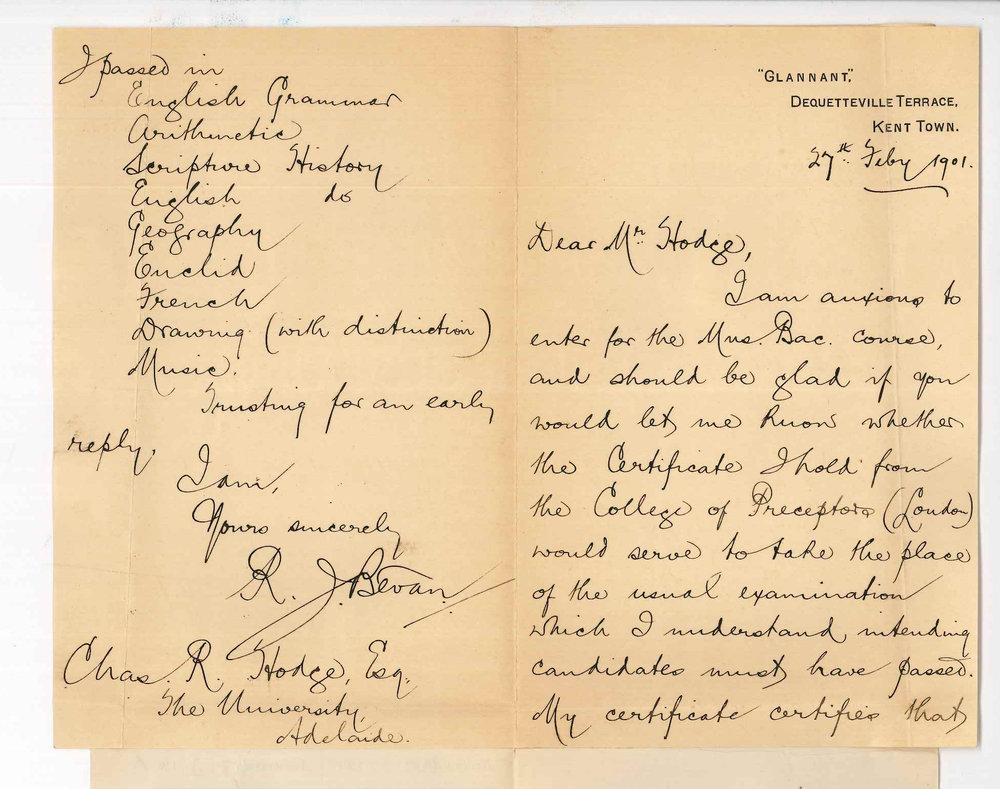 "GLANNANT,"
DEQUETTEVILLE TERRACE,
KENT TOWN.
27th Feby 1901.
Dear Mr Hodge,
I am anxious to
enter for the Mus. Bac. course,
and should be glad if you
would let me know whether
the Certificate I hold from
the College of Preceptors (London)
would serve to take the place
of the usual examination
which I understand intending
candidates must have passed.
My certificate certifies that
I passed in
English Grammar
Arithmetic
Scripture History
English do
Geography
Euclid
French
Drawing (with distinction)
Music.
Trusting for an early
reply.
I am,
Yours sincerely
R. J. Bevan.
Chas. R. Hodge, Esq.
The University,
Adelaide.